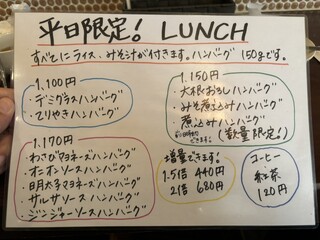 平日限定! LUNCH
すべてにライス・みそ汁が付きます。ハンバーグ 150gです。
1,100円
・デミグラスハンバーグ
・てりやきハンバーグ
1,150円
・大根おろしハンバーグ
・みそ煮込みハンバーグ
・煮込みハンバーグ
(数量限定!)
1,170円
・わさびマヨネーズハンバーグ
・オニオンソースハンバーグ
・明太子マヨネーズハンバーグ
・サルサソースハンバーグ
・ジンジャーソースハンバーグ
増量できます!
1.5倍 440円
2倍 680円
コーヒー
紅茶
120円